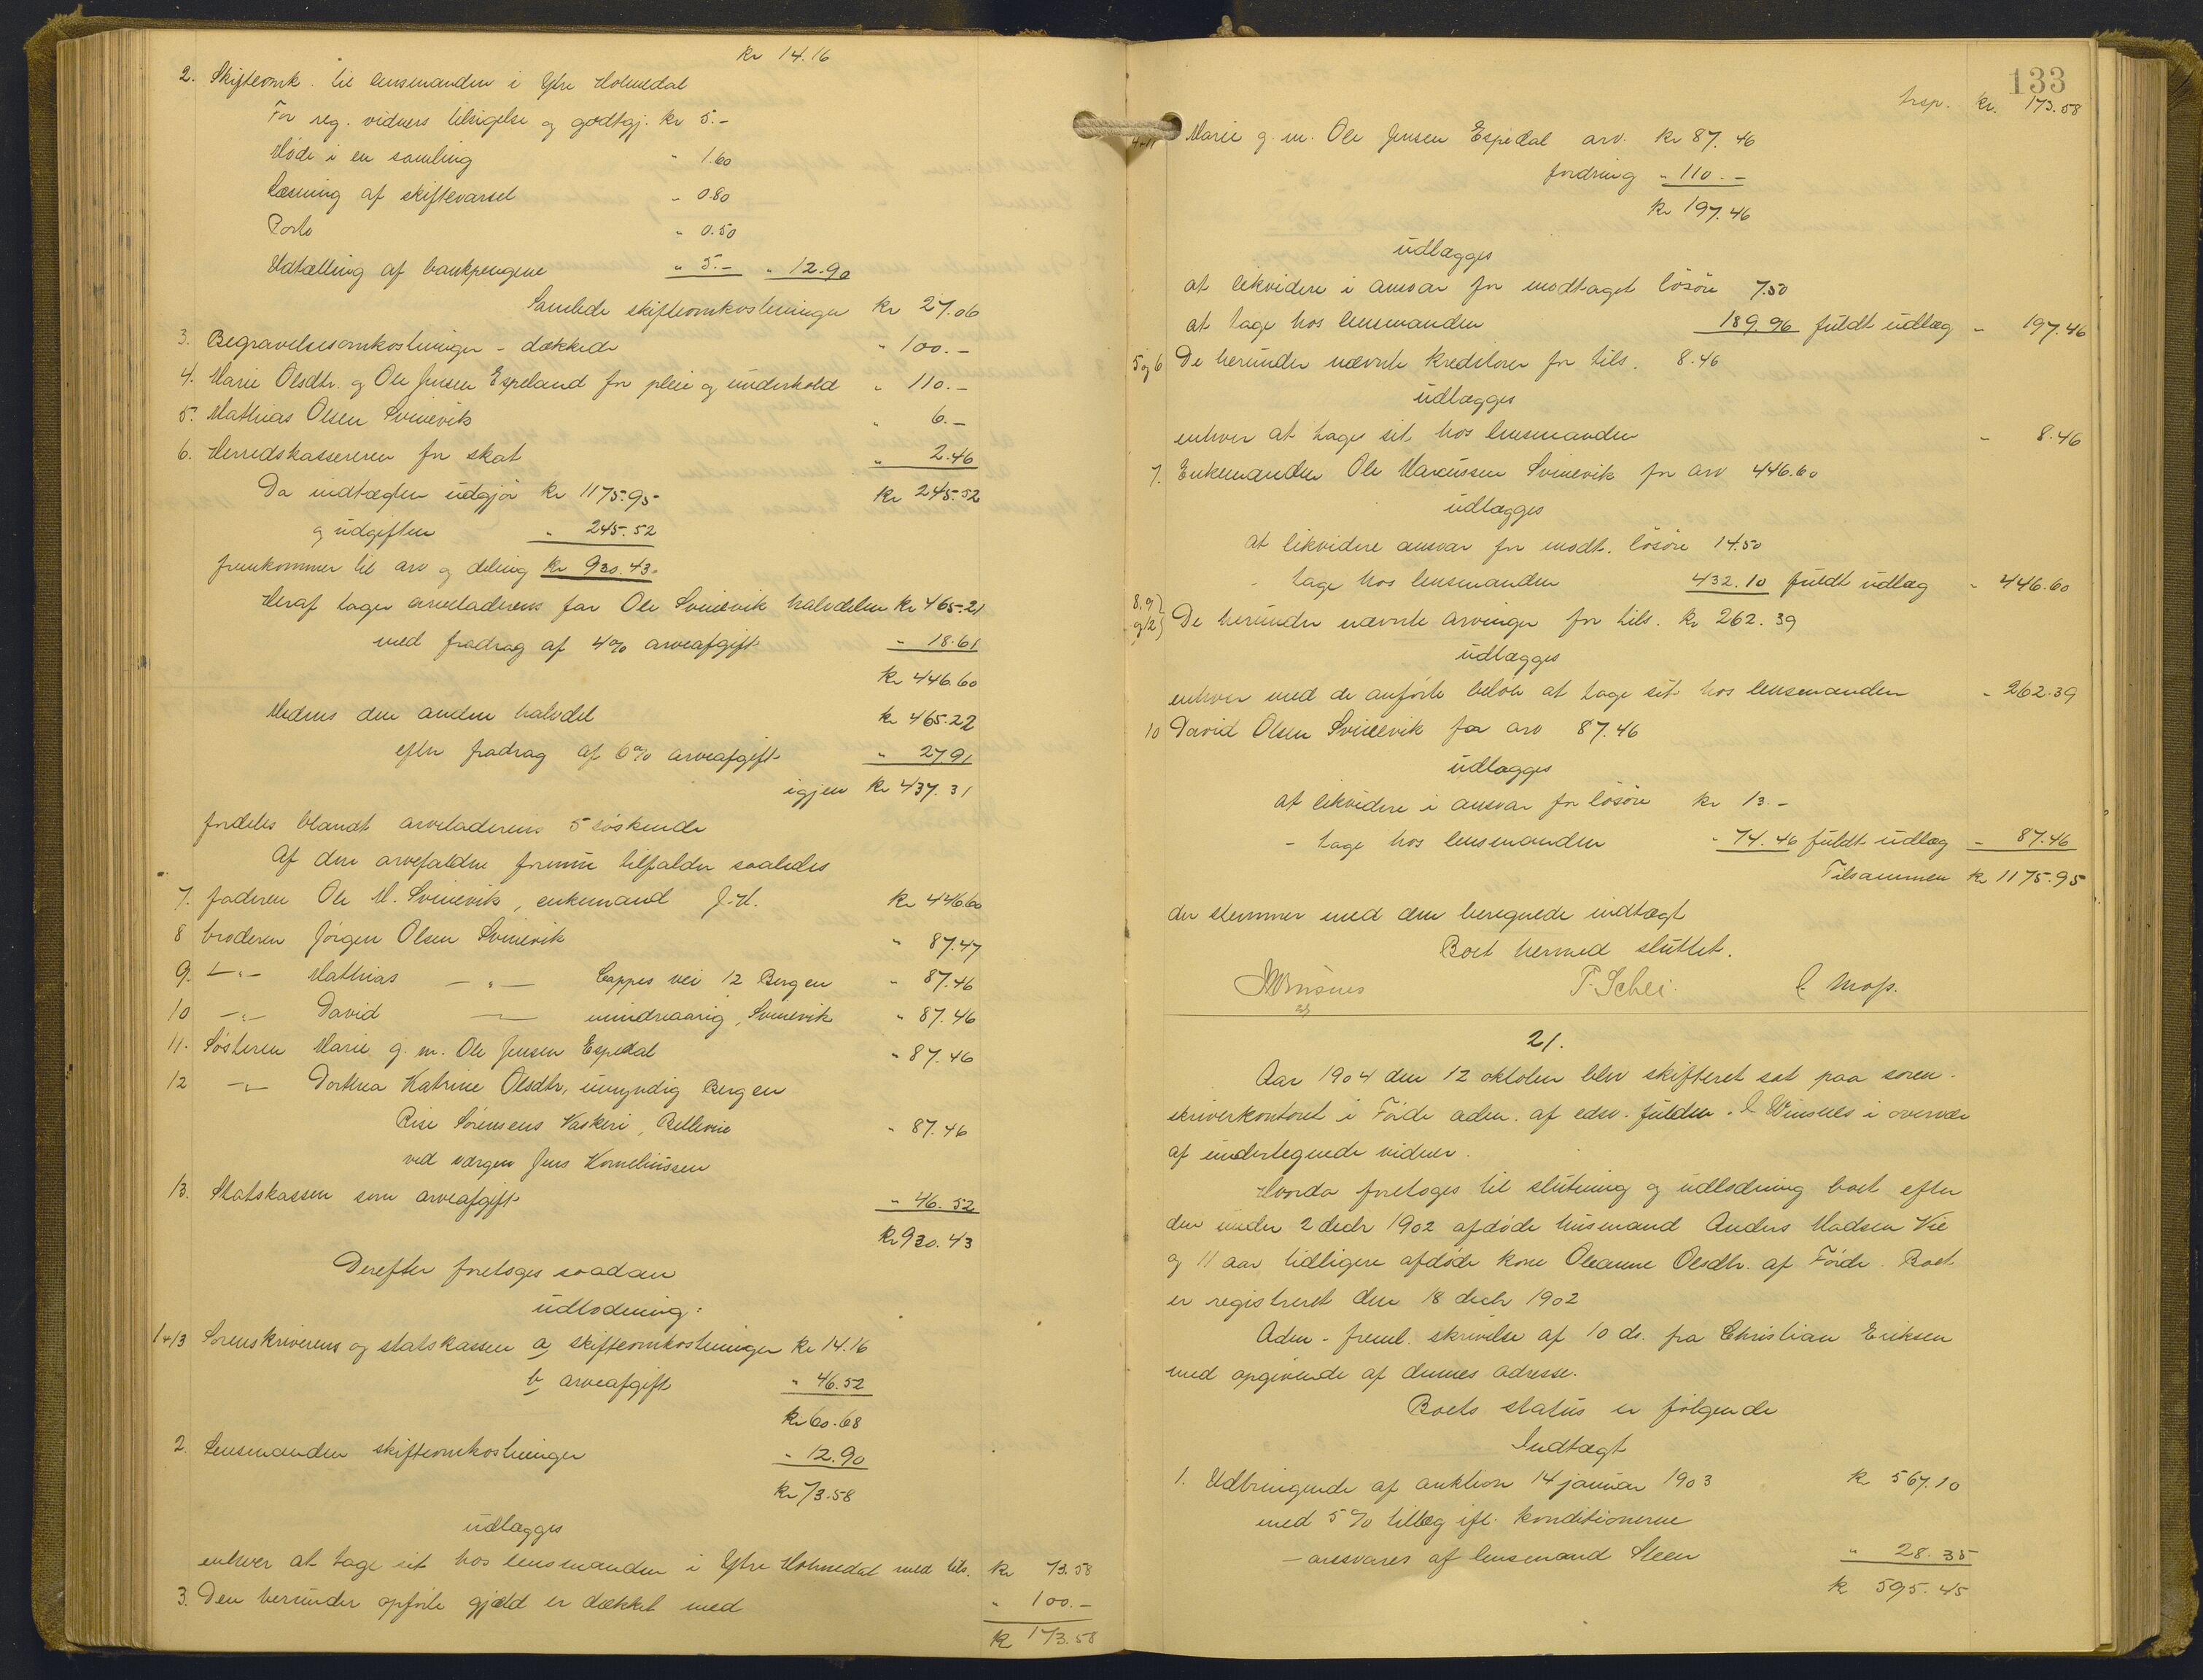 kr 14.16
2. Skifteomk. til lensmanden i Ytre Holmedal
For reg. vidners tilsigelse og godtgj. kr 5.-
Møde i en samling " 1.60
Læsning af skiftevarsel " 0.80
Porto " 0.50
Udtælling af bankpengene " 5.- " 12.90
Samlede skifteomkostninger kr 27.06
3. Begravelsesomkostninger - dækkede " 100.-
4. Marie Olsdtr. og Ole Jensen Espeland for pleie og underhold " 110.-
5. Mathias Olsen Svinevik " 6.-
6. Herredskassereren for skat " 2.46
Da indtægten udgjør kr 1175.95 kr 245.52
og udgiften " 245.52
fremkommer til arv og deling kr 930.43
Heraf tager arveladerens far Ole Svinevik halvdelen kr 465.21
med fradrag af 4% arveafgift " 18.61
kr 446.60
Medens den anden halvdel kr 465.22
efter fradrag af 6% arveafgift " 27.91
igjen kr 437.31
fordeles blandt arveladerens 5 søskende
Af den arvefaldne formue tilfalder saaledes
7. faderen Ole M. Svinevik, enkemand kr 446.60
8 broderen Jørgen Olsen Svinevik " 87.47
9. -"- Mathias -"- Cappes vei 12 Bergen " 87.46
10 -"- David -"- mindreaarig, Svinevik " 87.46
11. Søsteren Marie g. m. Ole Jensen Espedal " 87.46
12 -"- Dorthea Katrine Olsdtr, umyndig Bergen
Rise Sørensens Vaskeri, Bellevue " 87.46
ved værgen Jens Korneliussen
13. Statskassen som arveafgift " 46.52
kr 930.43
Derefter foretoges saadan
udlodning:
1+13 Sorenskriverens og statskassen a, skifteomkostninger kr 14.16
b, arveafgift " 46.52
kr 60.68
2. Lensmanden skifteomkostninger " 12.90
kr 73.58
udlægges
enhver at tage sit hos lensmanden i Ytre Holmedal med tils. kr 73.58
3. Den herunder opførte gjæld er dækket med " 100.-
kr 173.58
133
trsp. kr. 173.58
4+11 Marie g. m. Ole Jensen Espedal arv. kr 87.46
fordring " 110.-
kr 197.46
udlægges
at likvidere i ansvar for modtaget løsøre 7.50
at tage hos lensmanden 189.96 fuldt udlæg " 197.46
5 og 6 De herunder nævnte kreditorer for tils. 8.46
udlægges
enhver at tage sit hos lensmanden " 8.46
7. Enkemanden Ole Marcussen Svinevik for arv 446.60
udlægges
at likvidere ansvar for modt. løsøre 14.50
- tage hos lensmanden 432.10 fuldt udlæg " 446.60
8.9 og 12 De herunder nævnte arvinger for tils. kr 262.39
udlægges
enhver med de anførte beløb at tage sit hos lensmanden " 262.39
10 David Olsen Svinevik for arv 87.46
udlægges
at likvidere i ansvar for løsøre kr 13.-
- tage hos lensmanden " 74.46 fuldt udlæg " 87.46
Tilsammen kr 1175.95
der stemmer med den beregnede indtægt
Boet hermed sluttet.
T. Schei.
21.
Aar 1904 den 12 oktober blev skifteret sat paa soren-
skriverkontoret i Førde adm. af edsv. fuldm. Winsnes i overvær
af undertegnede vidner.
Hvorda foretoges til slutning og udlodning boet efter
den under 2 decbr 1902 afdøde husmand Anders Madsen Vie
og 11 aar tidligere afdøde kone Oleanne Olsdtr. af Førde. Boet
er registreret den 18 decbr 1902
Adm. freml. skrivelse af 10 ds. fra Christian Eriksen
med opgivende af dennes adresse.
Boets status er følgende
Indtægt
1. Udbringende af auktion 14 januar 1903 kr 567.10
med 5% tillæg ifl. konditionerne
- ansvares af lensmand Steen " 28.35
kr 595.45